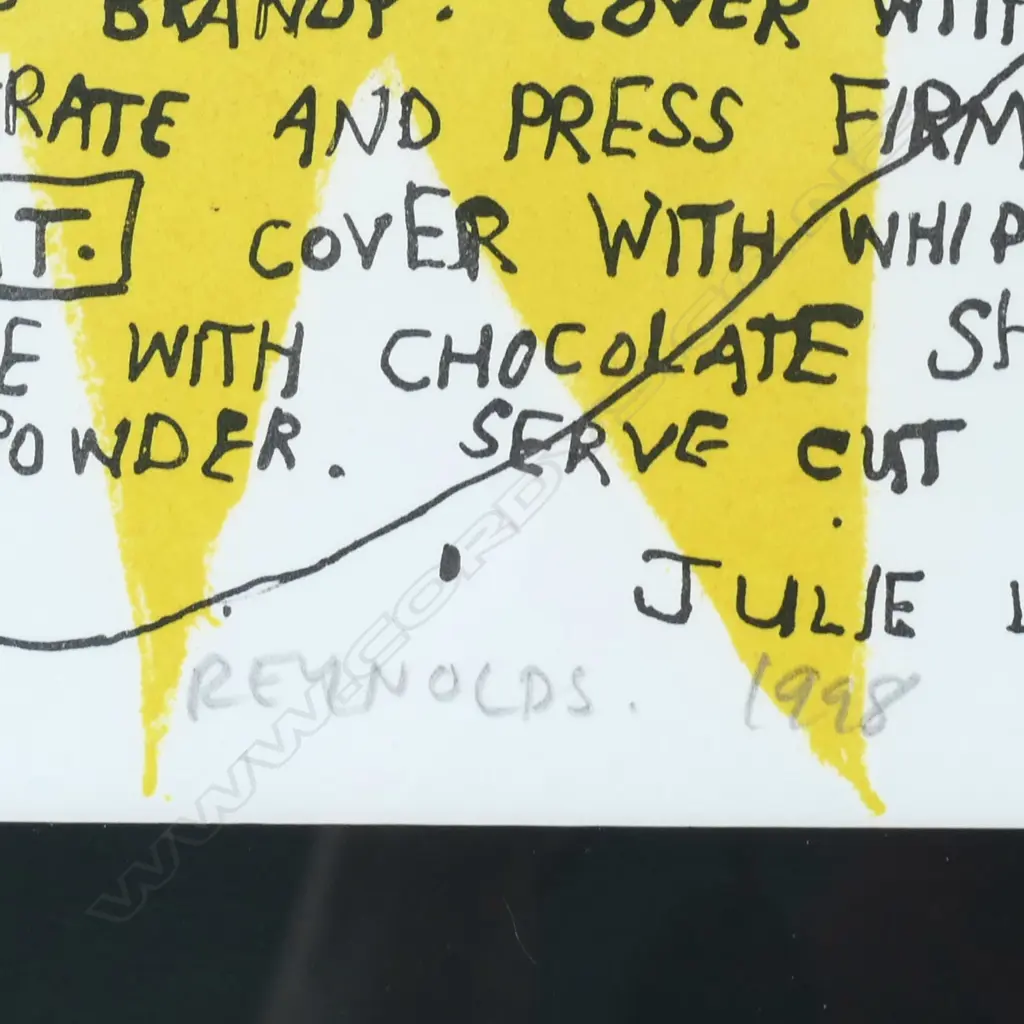 BRANDY. COVER WITH
RATE AND PRESS FIRM
T. COVER WITH WHIP
E WITH CHOCOLATE SH
POWDER. SERVE CUT
JULIE
REYNOLDS. 1998